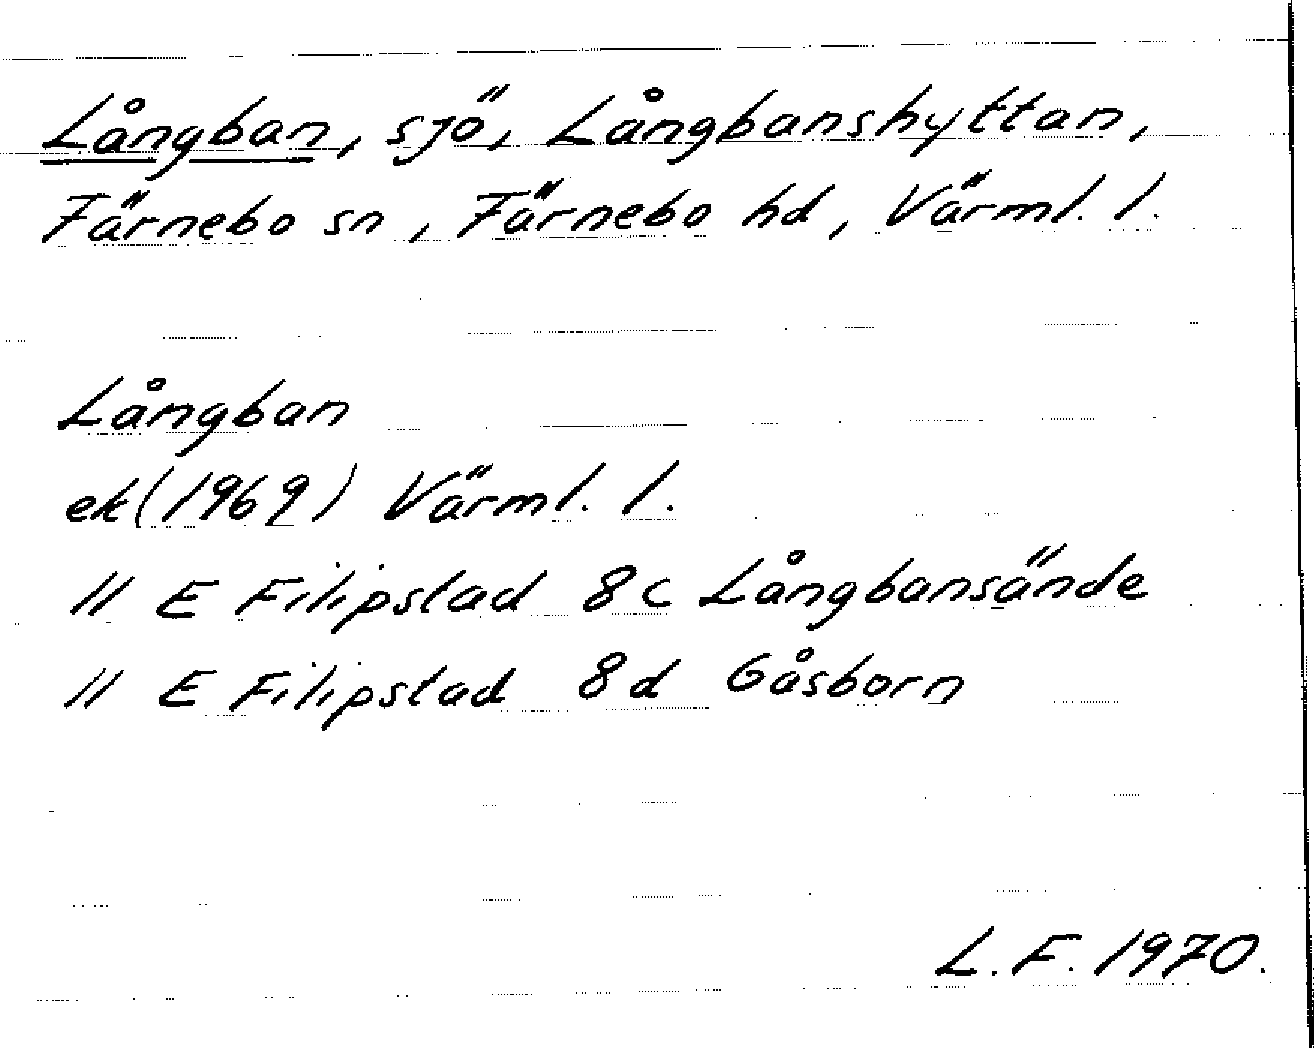 Långban, sjö, Långbanshyttan,
Färnebo sn, Färnebo hd, Värml. l.
Långban
ek (1969) Värml. l.
11 E Filipstad 8c Långbansände
11 E Filipstad 8d Gåsborn
L. F. 1970.